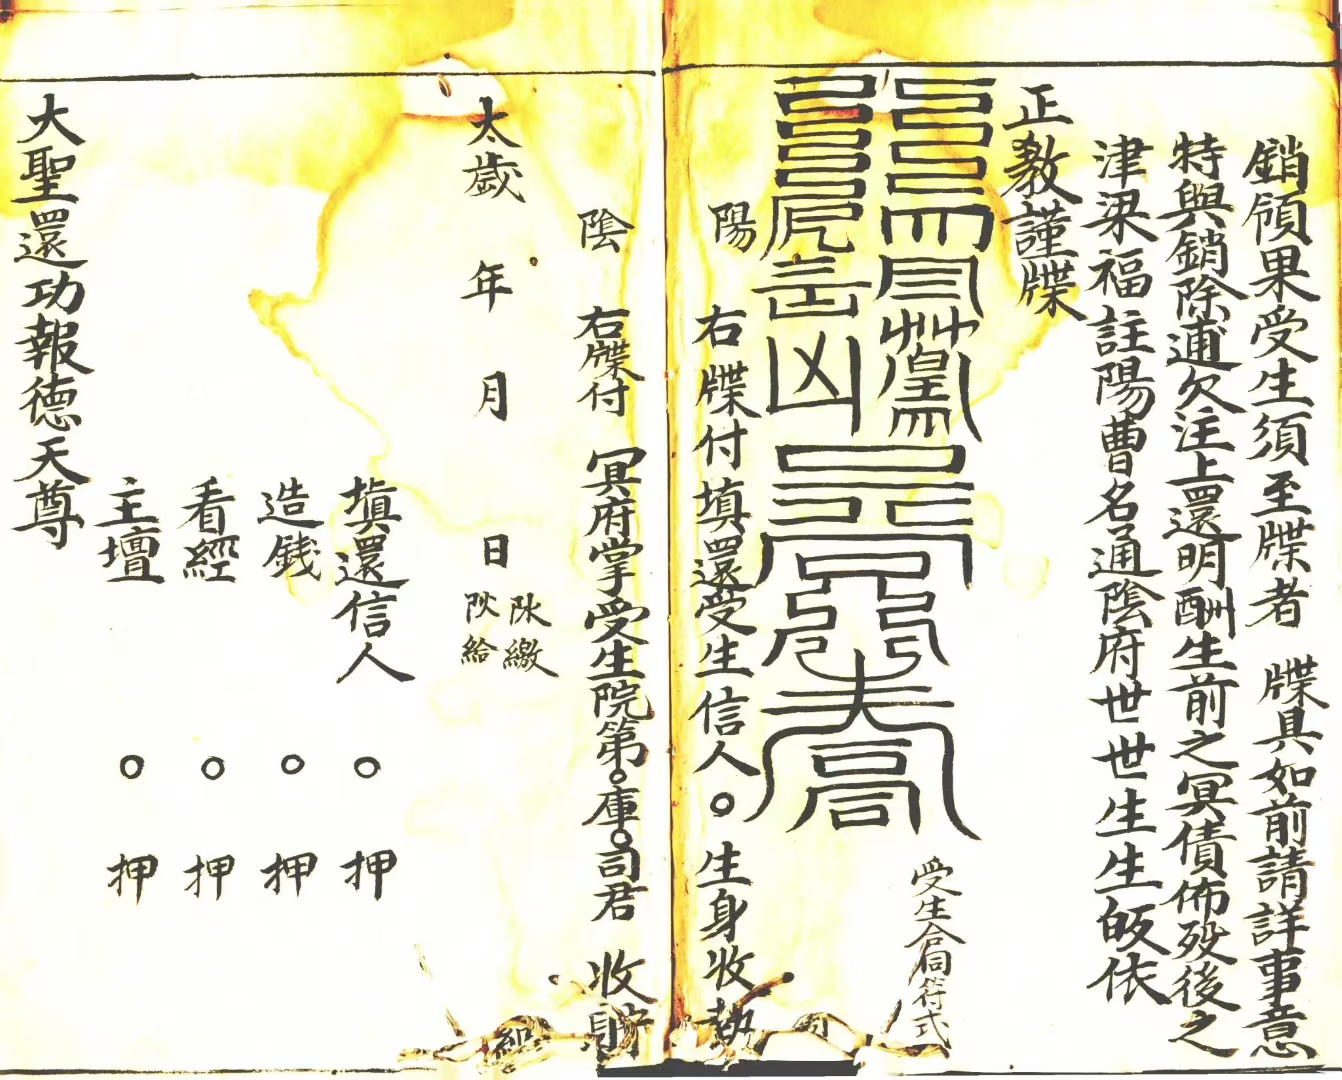 銷頎果受生須至牒者　牒具如前請詳事意
特與銷除逋欠注上還明酬生前之冥債佈歿後之
津梁福註陽曹名通陰府世世生生皈依
正教謹牒
受生合同符式
陽　右牒付填還受生信人〇生身收執
陰　右牒付　冥府掌受生院第〇庫〇司君　收貯
太歲　年　月　日
填還信人　〇　押
造錢　〇　押
看經　〇　押
主壇　〇　押
大聖還功報德天尊